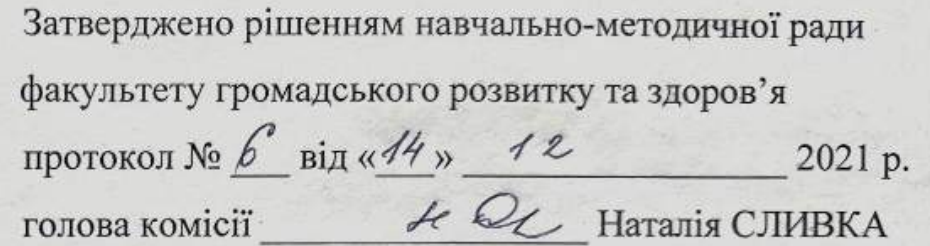 Затверджено рішенням навчально-методичної ради
факультету громадського розвитку та здоров'я
протокол № 6 від «14» 12 2021 р.
голова комісії Наталія СЛИВКА